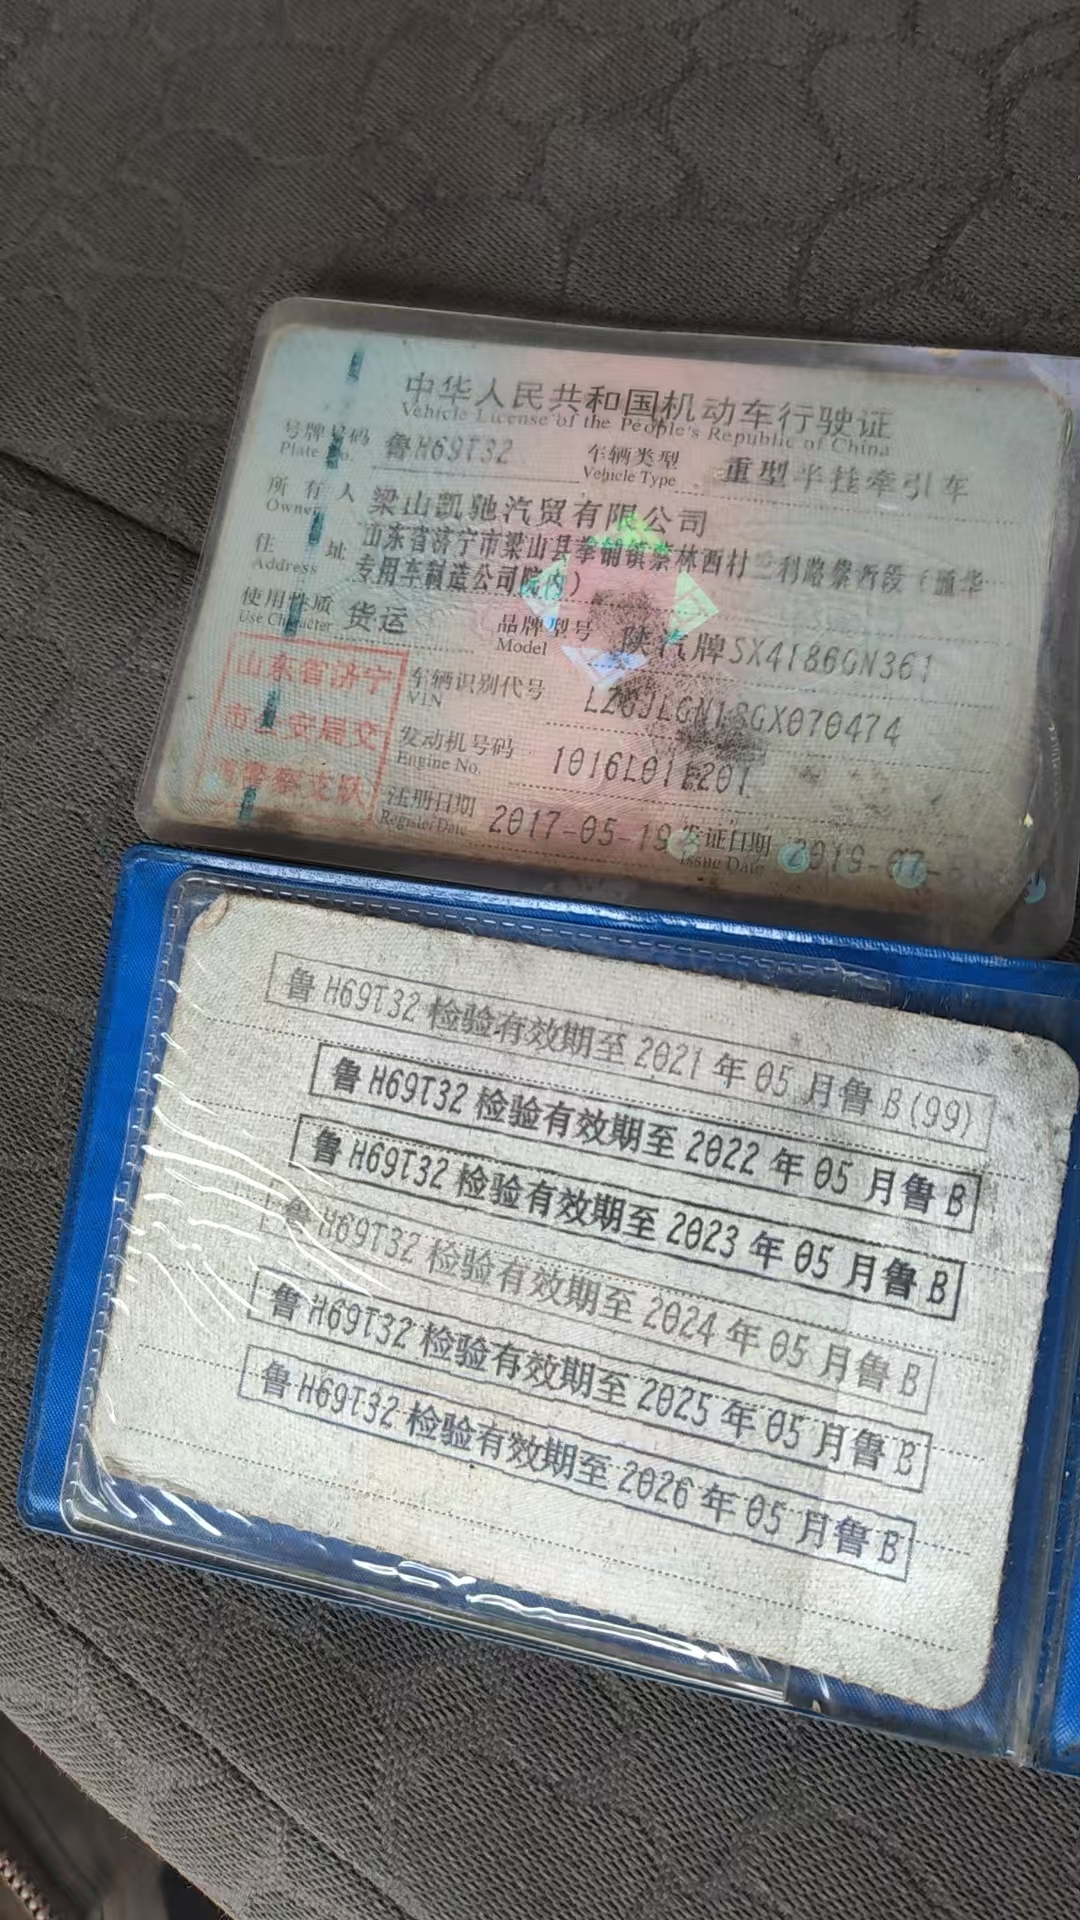 中华人民共和国机动车行驶证
Vehicle License of the People's Republic of China
号牌号码 鲁H69T32 车辆类型 重型半挂牵引车
Plate No. Vehicle Type
所有人 梁山凯驰汽贸有限公司
Owner
住址 山东省济宁市梁山县拳铺镇蔡林西村
Address 专用车制造公司院内）
使用性质 货运 品牌型号 陕汽牌SX4186GN361
Use Character Model
山东省济宁
市公安局交
通警察支队
车辆识别代号
VIN
发动机号码 1016L01E201
Engine No.
注册日期 2017-05-19 发证日期 2019-07-
Register Date Issue Date
鲁H69T32 检验有效期至 2021 年 05 月鲁B(99)
鲁H69T32 检验有效期至 2022 年 05 月鲁B
鲁H69T32 检验有效期至 2023 年 05 月鲁B
鲁H69T32 检验有效期至 2024 年 05 月鲁B
鲁H69T32 检验有效期至 2025 年 05 月鲁B
鲁H69T32 检验有效期至 2026 年 05 月鲁B